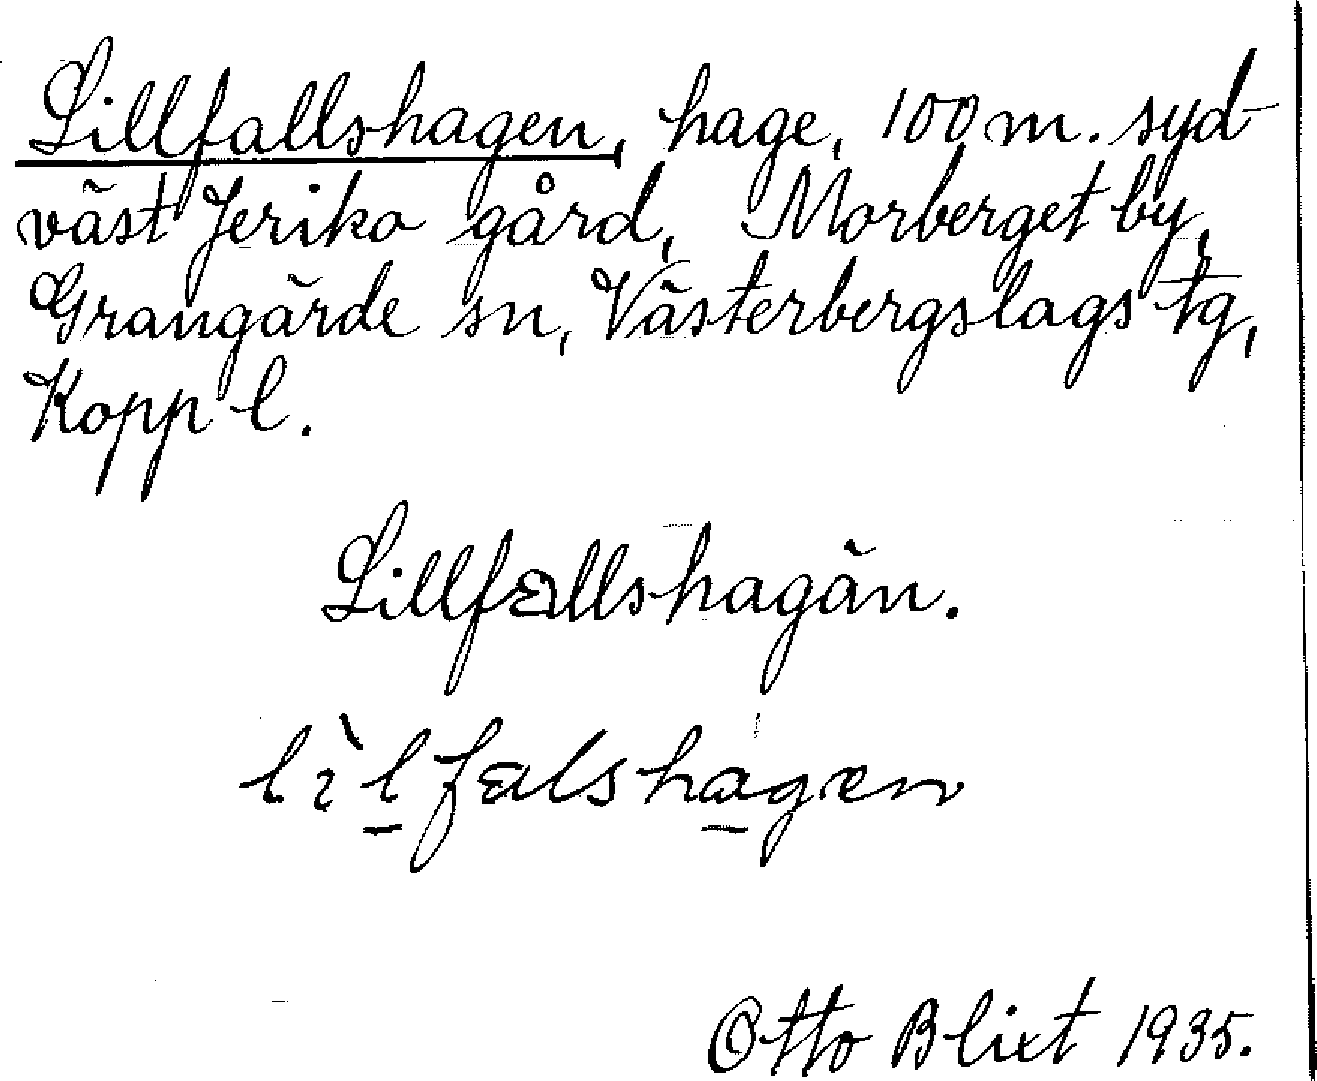 Lillfallshagen, hage, 100 m. syd-
väst Jeriko gård, Morberget by,
Grangärde sn, Västerbergslags tg,
Kopp l.
Lillfallshagän.
lìlfalshagen
Otto Blixt 1935.